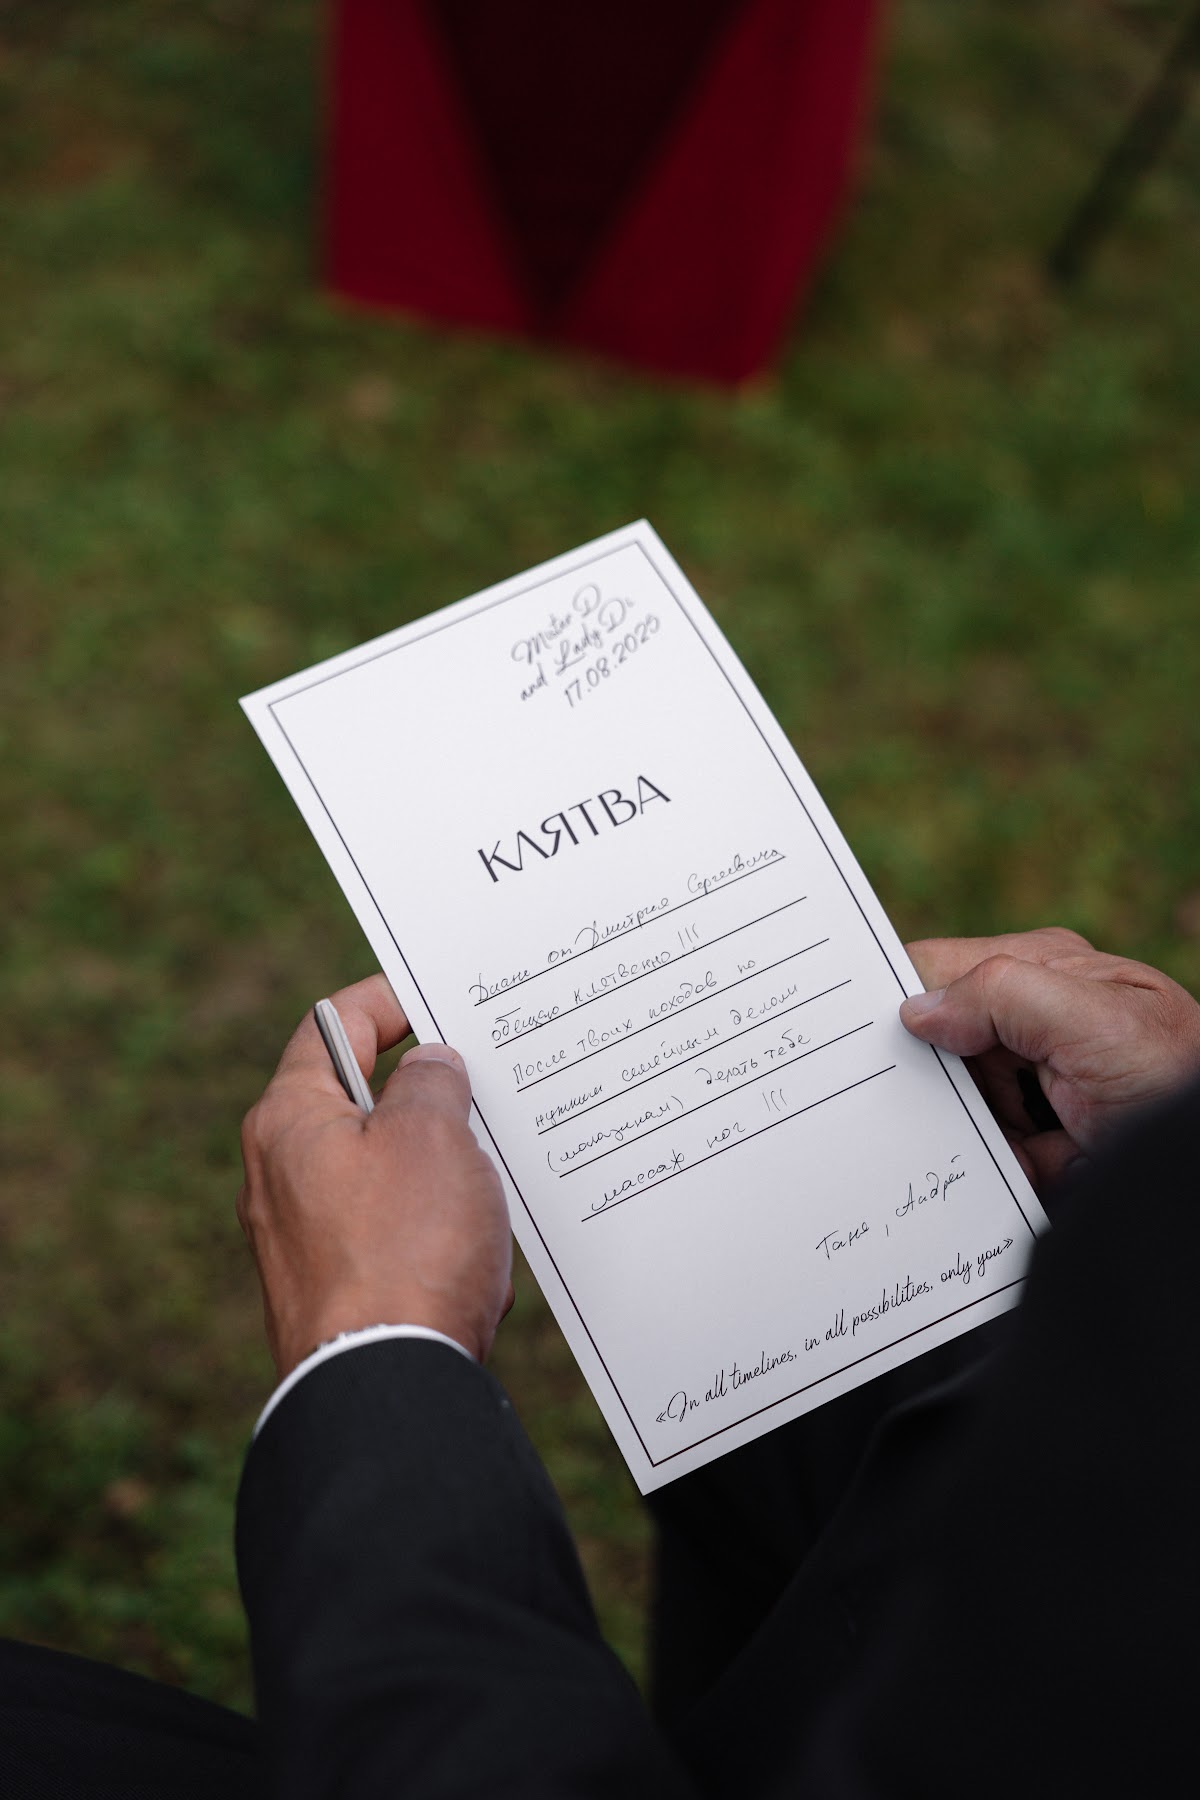 Mister D
and Lady Di
17.08.2025
КЛЯТВА
Диане от Дмитрия Сергеевича
обещаю клятвенно !!!
После твоих походов по
нужным семейным делам
(магазинам) делать тебе
массаж ног !!!
Таня, Андрей
«In all timelines, in all possibilities, only you»